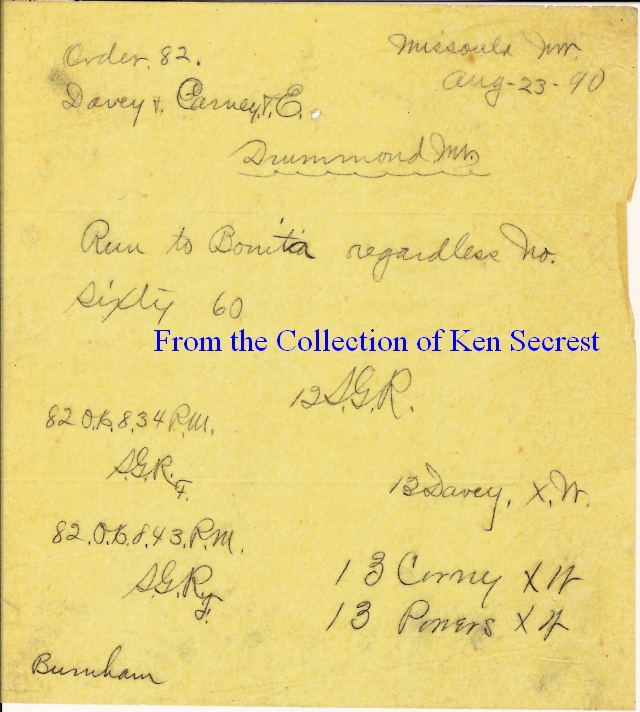 Order 82.
Missoula Mn.
Aug-23-90
Davey & Carney, & E.
Drummond Mn
Run to Bonita regardless No.
Sixty 60
From the Collection of Ken Secrest
12 S.G.R.
82 O.K. 8.34 P.M.
S.G.R.
F.
13 Davey, X.W.
82. O.K. 8.43. P.M.
S.G.R.
F.
13 Corny X W
13 Powers X W
Burnham